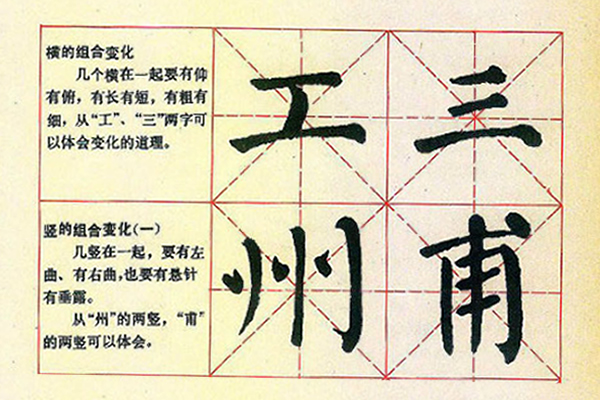 横的组合变化
几个横在一起要有仰
有俯，有长有短，有粗有
细，从“工”、“三”两字可
以体会变化的道理。
工 三
竖的组合变化(一)
几竖在一起，要有左
曲、有右曲,也要有悬针
有垂露。
从“州”的两竖，“甫”
的两竖可以体会。
州 甫